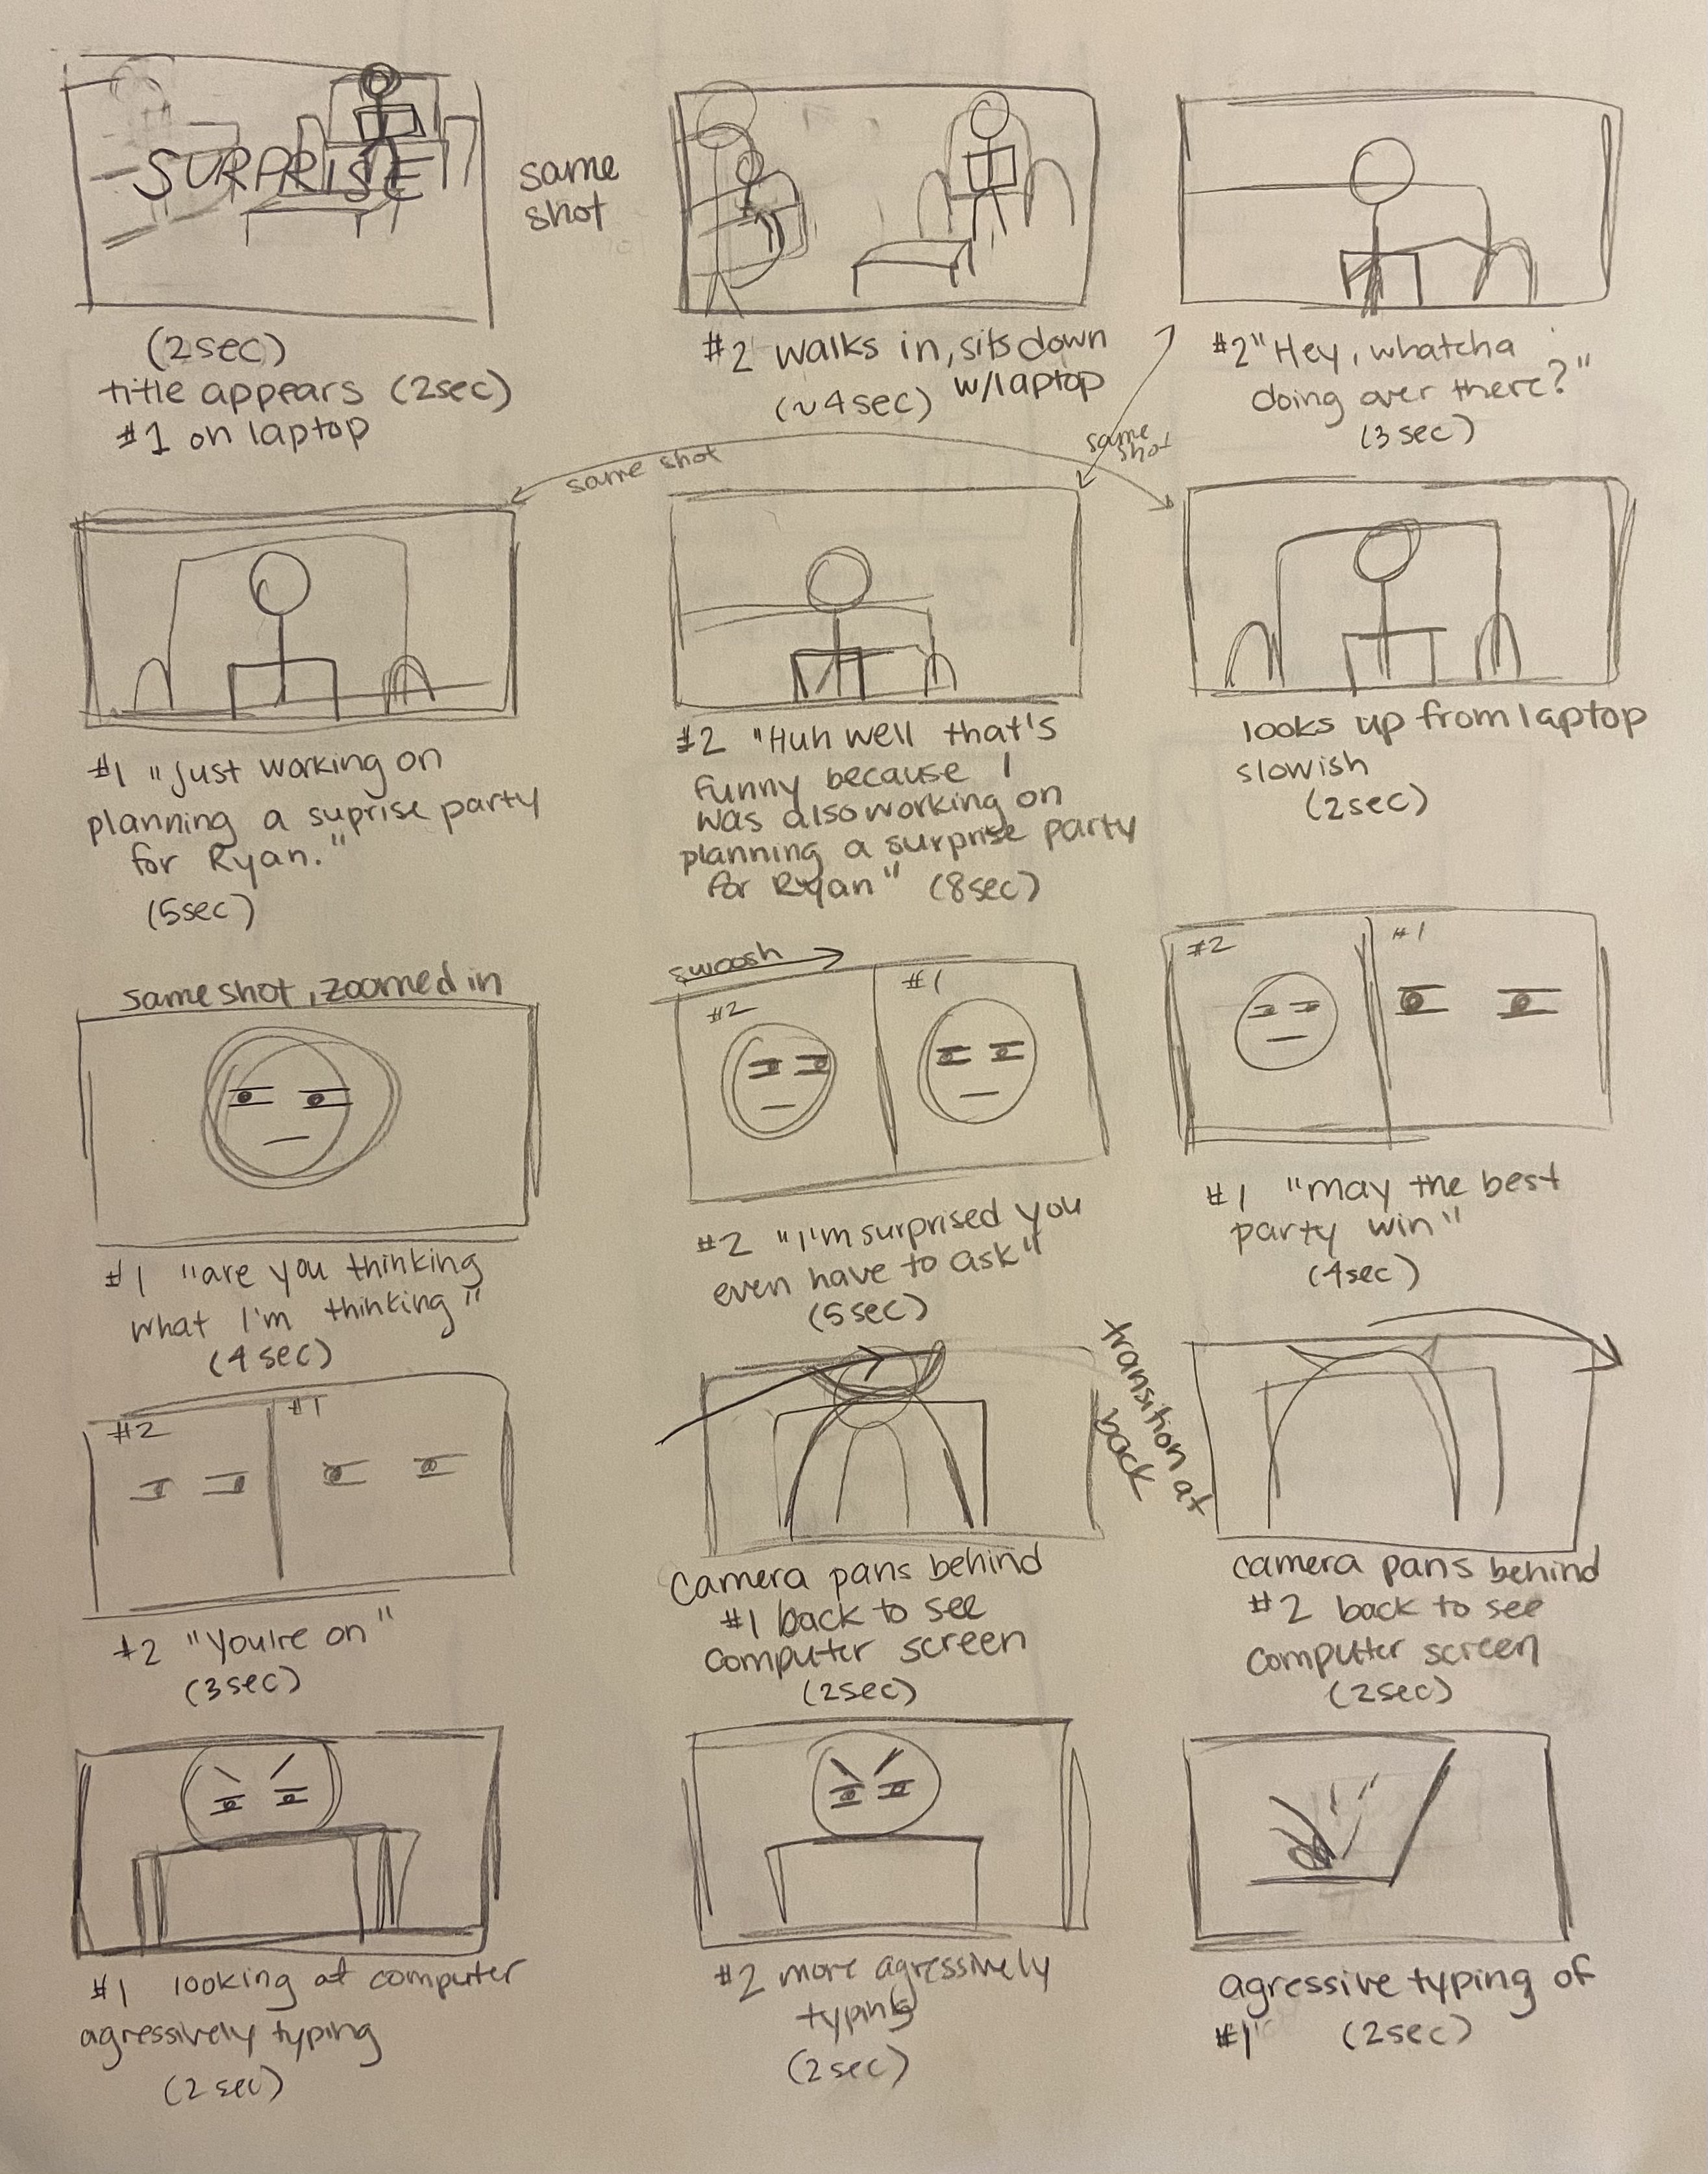 SURPRISE
same
shot
(2sec)
title appears (2sec)
#1 on laptop
#2 walks in, sits down
w/laptop
(~4sec)
#2 "Hey, whatcha
doing over there?"
(3sec)
same shot
same
shot
#1 "just working on
planning a suprise party
for Ryan."
(5sec)
#2 "Huh well that's
funny because I
was also working on
planning a surprise party
for Ryan" (8sec)
looks up from laptop
slowish
(2sec)
same shot, zoomed in
#1 "are you thinking
what I'm thinking"
(4sec)
swoosh
#2
#1
#2 "I'm surprised you
even have to ask"
(5sec)
#2
#1
#1 "may the best
party win"
(4sec)
#2
#1
#2 "You're on"
(3sec)
Camera pans behind
#1 back to see
computer screen
(2sec)
transition at
back
camera pans behind
#2 back to see
computer screen
(2sec)
#1 looking at computer
agressively typing
(2sec)
#2 more agressively
typing
(2sec)
agressive typing of
#1 (2sec)